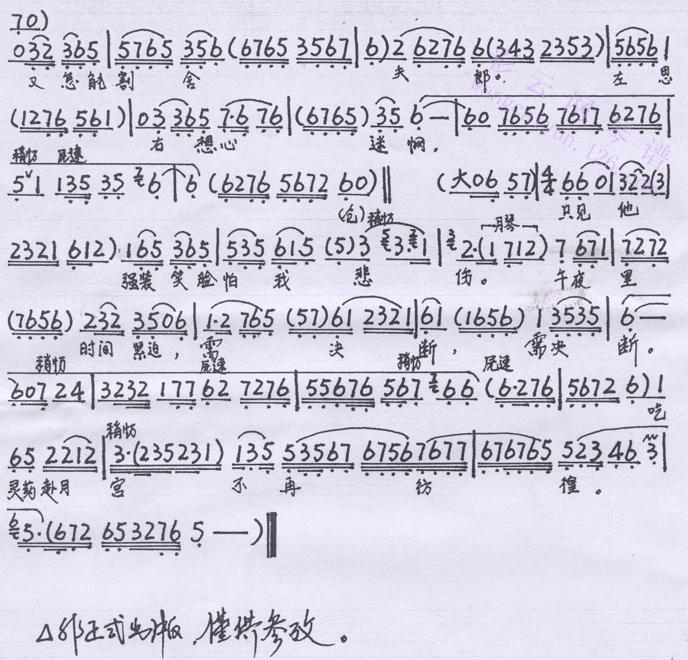 70)
032 365 | 5765 356 (6765 3567 | 6) 2 6276 6 (343 2353) | 5656 1
又 怎能割 舍 夫 郎。 左 思
(1276 561) | 03 365 7·6 76 | (6765) 35 6 — | 60 7656 7617 6276 |
右 想心 迷 惘。
稍快 尾速
5 1 135 35 6 6 (6276 5672 60) || (大06 57) 660 1322(3 |
(仓) 稍快 只见 他
月琴
2321 612) 165 365 | 535 615 (5) 3 3·1 | 2·(1 712) 7 671 | 7272
强装 笑脸怕 我 悲 伤。 午夜 里
(7656) 232 3506 | 1·2 765 (57)61 2321 | 61 (1656) 1 3535 | 6 —
时间 紧迫, 需 决 断, 需决 断。
稍快 尾速 稍快 尾速
607 24 | 3232 177 62 7276 | 55676 567 66 (6·276 | 5672 6) 1
吃
稍快
65 2212 | 3·(235231) 135 53567 67567677 | 676765 523 46 3 |
灵药赴月 宫 不 再 彷 徨。
5·(672 653276 5 — )
△非正式出版,仅供参考。